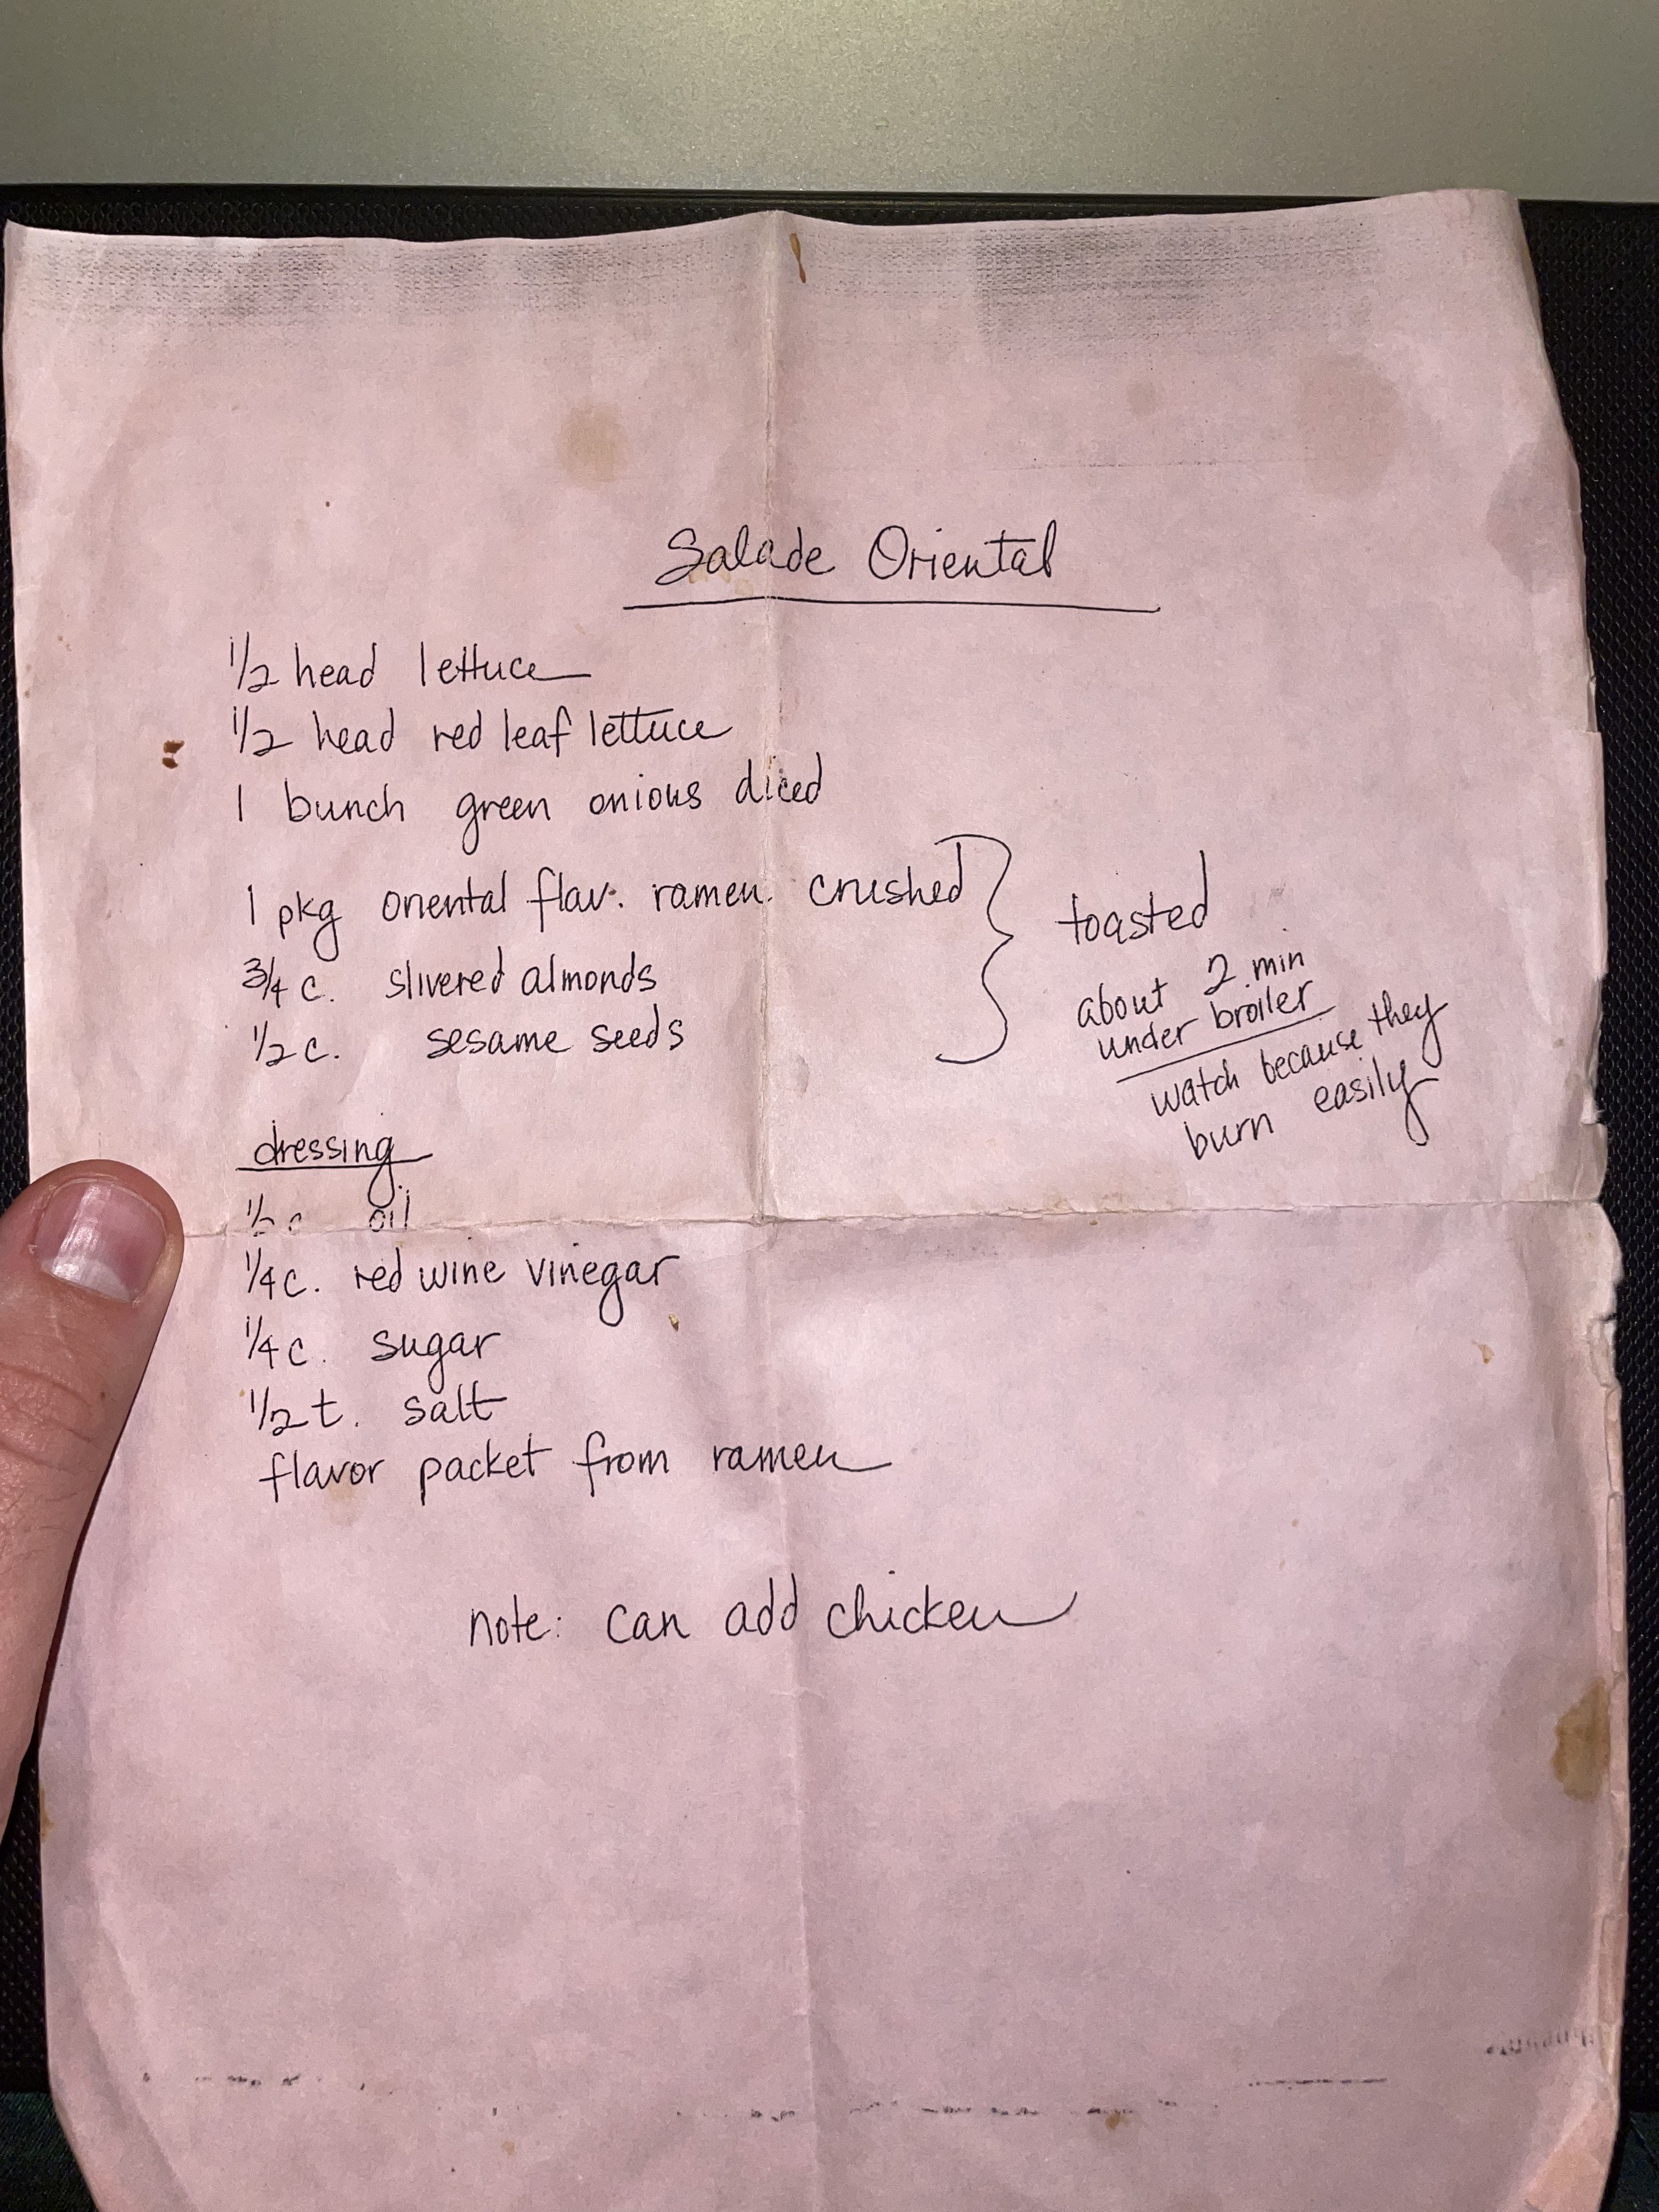 Salade Oriental
1/2 head lettuce
1/2 head red leaf lettuce
1 bunch green onions diced
1 pkg oriental flav. ramen crushed
3/4 c. slivered almonds
1/2 c. sesame seeds
toasted
about 2 min
under broiler
watch because they
burn easily
dressing
oil
1/4 c. red wine vinegar
1/4 c. sugar
1/2 t. salt
flavor packet from ramen
note: can add chicken